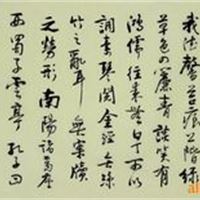 吾德馨苔痕上階綠
草色入簾青談笑有
鴻儒往來無白丁可以
調素琴閱金經無絲
竹之亂耳無案牘
之勞形南陽諸葛廬
西蜀子雲亭孔子曰